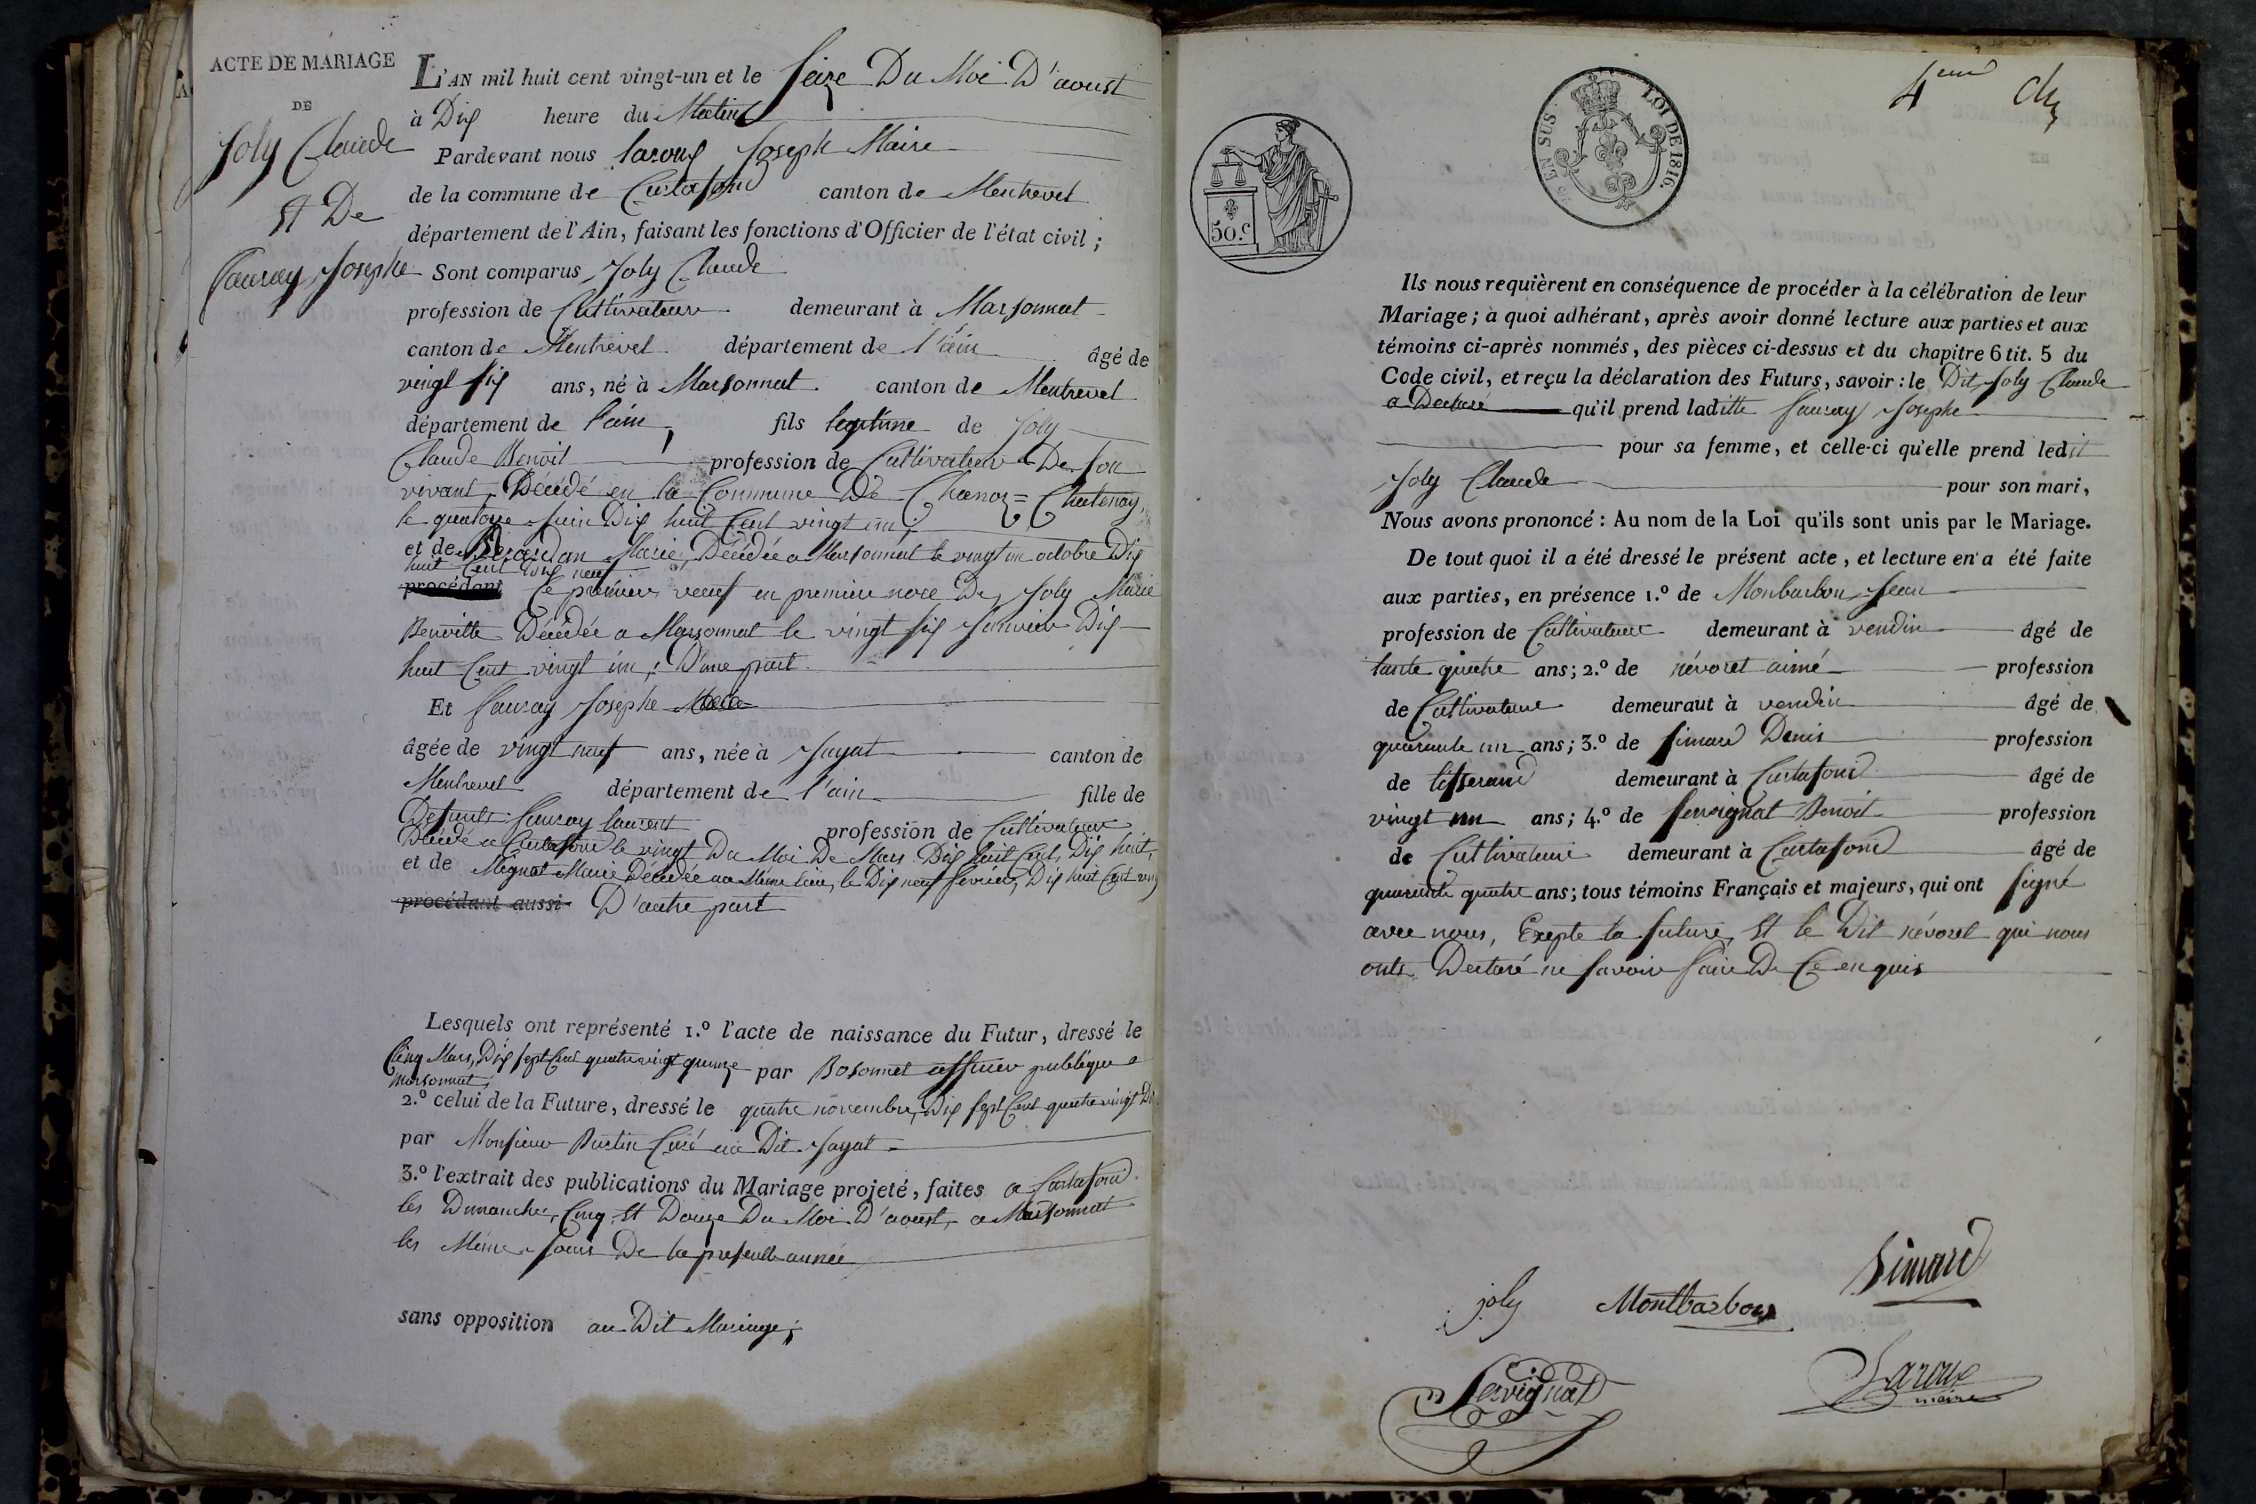 ACTE DE MARIAGE
DE
Joly Claude
Et De
Sauray Josephe
L'AN mil huit cent vingt-un et le Seize Du Moi D'aoust
à Dix heure du Matin
Pardevant nous Laroux Joseph Maire
de la commune de Curtafond canton de Montrevel
département de l'Ain, faisant les fonctions d'Officier de l'état civil ;
Sont comparus Joly Claude
profession de Cultivateur demeurant à Marsonnat
canton de Montrevel département de l'ain âgé de
vingt six ans, né à Marsonnat canton de Montrevel
département de l'ain, fils legitime de Joly
Claude Benoit profession de Cultivateur De Son
vivant, Décédé en la Commune De Chanoz = Chatenay,
le quatorze Juin Dix huit Cent vingt un,
et de Marie Décédée a Marsonnat le vingt un octobre Dix
huit Cent dix neuf
procédant Ce premier veuf en premiere noce De Joly Marie
Benoitte Décédée a Marsonnat le vingt six Janvier Dix
huit Cent vingt un, D'une part
Et Sauray Josephe
âgée de vingt neuf ans, née à Jayat canton de
Montrevel département de l'ain fille de
Defunts Sauray Laurent profession de Cultivateur
Décédé a Curtafond le vingt Du Moi De Mars Dix huit Cent Dix huit,
et de Mignat Marie Décédée au Même lieu, le Dix neuf fevrier, Dix huit Cent vingt
procédant aussi D'autre part
Lesquels ont représenté 1.º l'acte de naissance du Futur, dressé le
Cinq Mars, Dix sept Cent quatre vingt quinze par Bosonnet officier publique a
Marsonnat,
2.º celui de la Future, dressé le quatre novembre, Dix sept Cent quatre vingt Di
par Monsieur Curé au Dit Jayat
3.º l'extrait des publications du Mariage projeté, faites a Curtafond
les Dimanche, Cinq Et Douze Du Moi D'aoust, a Marsonnat
les Même Jours De la presente année
sans opposition au Dit Mariage ;
4eme
50.C
EN SUS.
LOI DE 1816.
Ils nous requièrent en conséquence de procéder à la célébration de leur
Mariage ; à quoi adhérant, après avoir donné lecture aux parties et aux
témoins ci-après nommés, des pièces ci-dessus et du chapitre 6 tit. 5 du
Code civil, et reçu la déclaration des Futurs, savoir : le Dit Joly Claude
a Declaré qu'il prend laditte Sauray Josephe
pour sa femme, et celle-ci qu'elle prend ledit
Joly Claude pour son mari,
Nous avons prononcé : Au nom de la Loi qu'ils sont unis par le Mariage.
De tout quoi il a été dressé le présent acte, et lecture en a été faite
aux parties, en présence 1.º de Monbarbon Jean
profession de Cultivateur demeurant à vendin âgé de
tante quatre ans ; 2.º de névoret aimé profession
de Cultivateur demeuraut à vendin âgé de
quarante un ans ; 3.º de Simard Denis profession
de tisserand demeurant à Curtafond âgé de
vingt un ans ; 4.º de Servignat Benoit profession
de Cultivateur demeurant à Curtafond âgé de
quarante quatre ans ; tous témoins Français et majeurs, qui ont signé
avec nous, Exepte la future Et le Dit névoret qui nous
onts Declaré ne savoir faire De Ce enquis
joly Montbarbon Simard
Servignat Laroux
maire